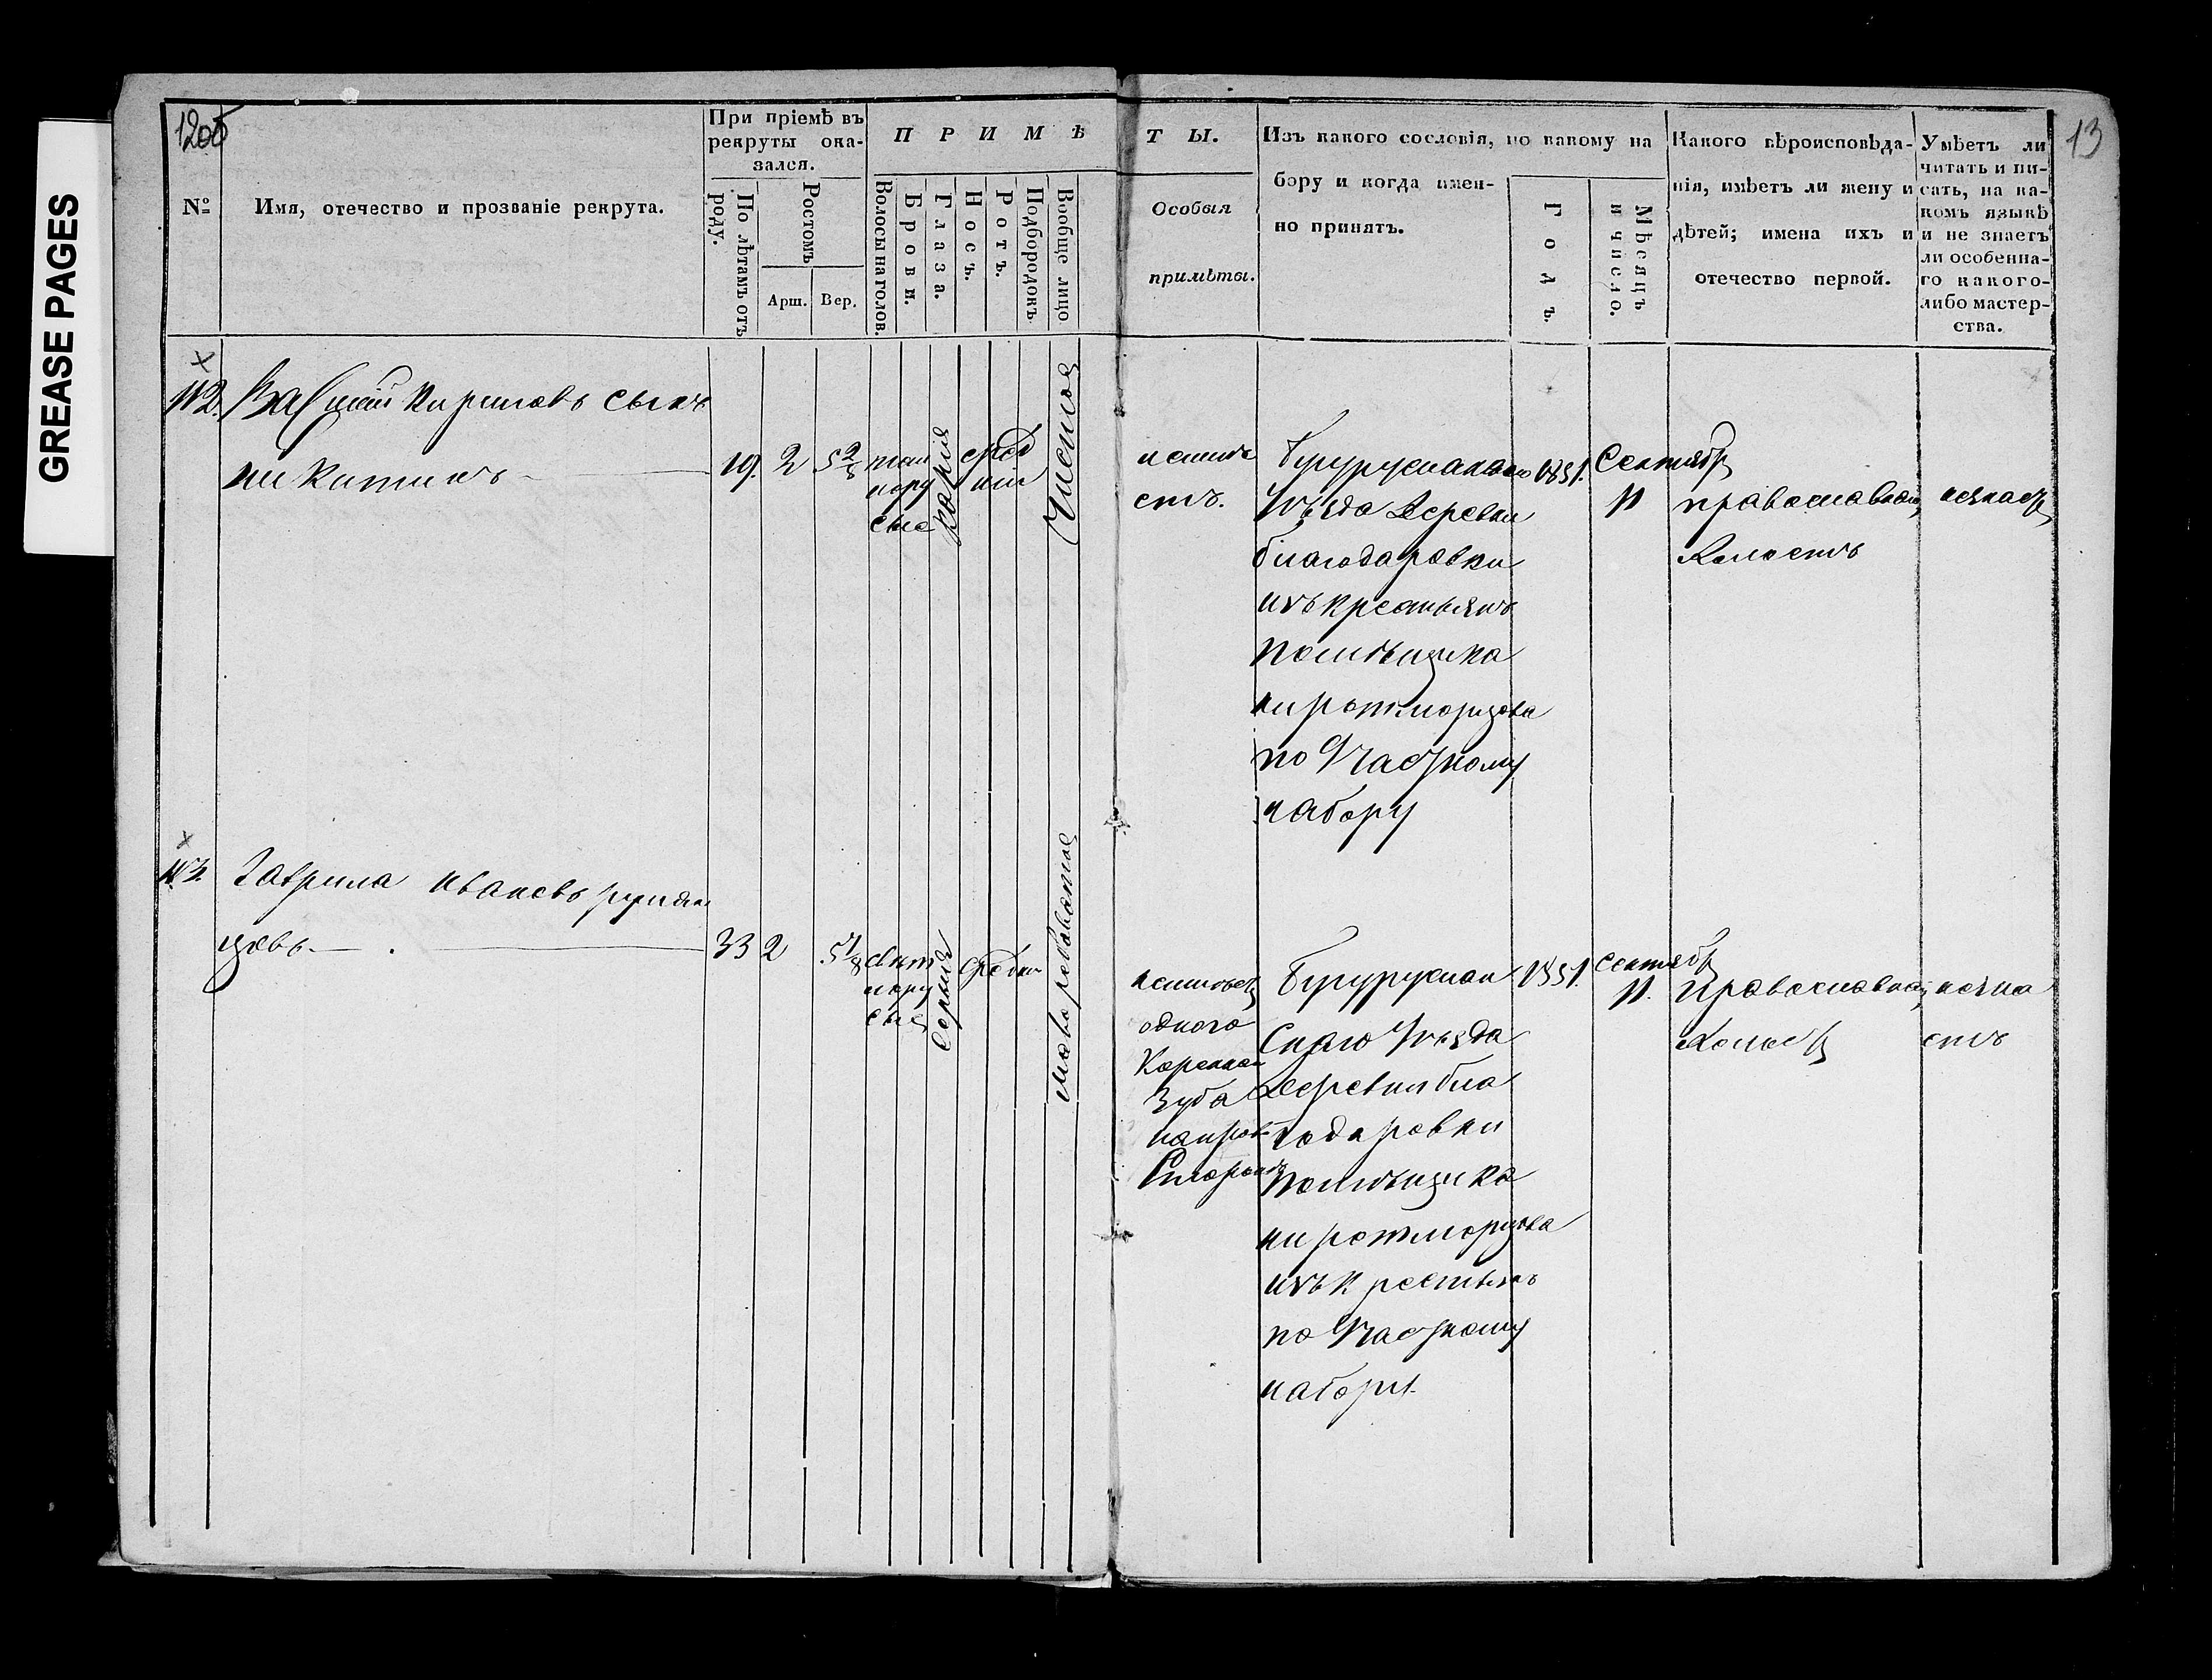 GREASE PAGES
12об
13
№
Имя, отечество и прозваніе рекрута.
При пріемѣ въ
рекруты ока-
зался.
По лѣтамъ отъ
роду.
Ростомъ
Арш.
Вер.
ПРИМѢ
Волосы на голов.
Брови.
Глаза.
Носъ.
Ротъ.
Подбородокъ.
Вообще лицо
ТЫ.
Особыя
примѣты.
Изъ какого сословія, по какому на
бору и когда имен-
но принятъ.
Годъ.
Мѣсяцъ
и число.
Какого вѣроисповѣда-
нія, имѣетъ ли жену и
дѣтей; имена ихъ и
отечество первой.
Умѣетъ ли
читать и пи-
сать, на ка-
комъ языкѣ
и не знаетъ
ли особенна-
го какого-
либо мастер-
ства.
Кириловъ сынъ
никитинъ
19.
2
5 2/8
нору
сые
карія
сред
ніи
Чистое
естъ.
Уѣзда Деревни
благодаровки
изъ крестьянъ
Помѣщика
по Частному
набору
1851.
Сентябр
11
православнаго
Холостъ
Гаврила Ивановъ румян
цовъ
33
2
5 7/8
свѣт
лору
сые
серыя
средн
одного
Кореннаго
Зуба
Бугуруслан
Скаго Уѣзда
Деревни бла
годаровки
Помѣщика
изъ крестьянъ
по Частному
набору
1851.
Сентябр
11.
Православнаго
Холостъ
незна
етъ